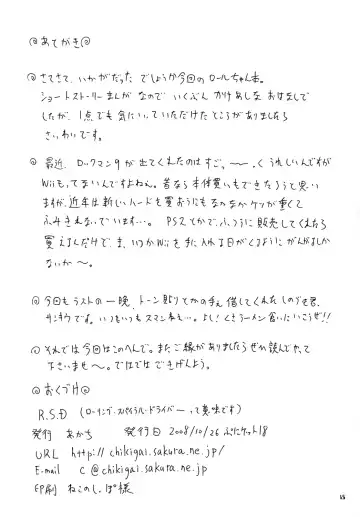 ◎あとがき◎
◎さてさて、いかがだったでしょうか今回のロールちゃん本。
ショートストーリーまんがなので いくぶん かけあしな おはなしで
したが、1点でも気にいっていただけたところがありましたら
さいわいです。
◎最近、ロックマン9が出てくれたのはすご、〜〜.くうれしいんですが
Wiiもってないんですよねん。昔なら本体買いもできたろうと思い
ますが、近年は新しいハードを買おうにもなかなかケツが重くて
ふみきれないでいます…。PS2とかで、ふつうに販売してくれたら
買えるんだけど、ま、いつかWiiを手に入れる日がくるようにがんばるしか
ないか〜。
◎今回もラストの一晩、トーン貼りとかの手を借してくれた しのざき君、
サンキウです。いつもいつもスマン本も…。よし!くさラーメン食いにいこうぜ!!
◎それでは今回はこのへんで。またご縁がありましたらぜひ読んでやって
下さいませ〜。ではではごきげんよう。
◎おくづけ◎
R.S.D (ローリング・スパイラル・ドライバーって意味です)
発行 あかち 発行日 2008/10/26 ぷにケット18
URL http://chikigai.sakura.ne.jp/
E-mail c@chikigai.sakura.ne.jp
印刷 ねこのしっぽ様